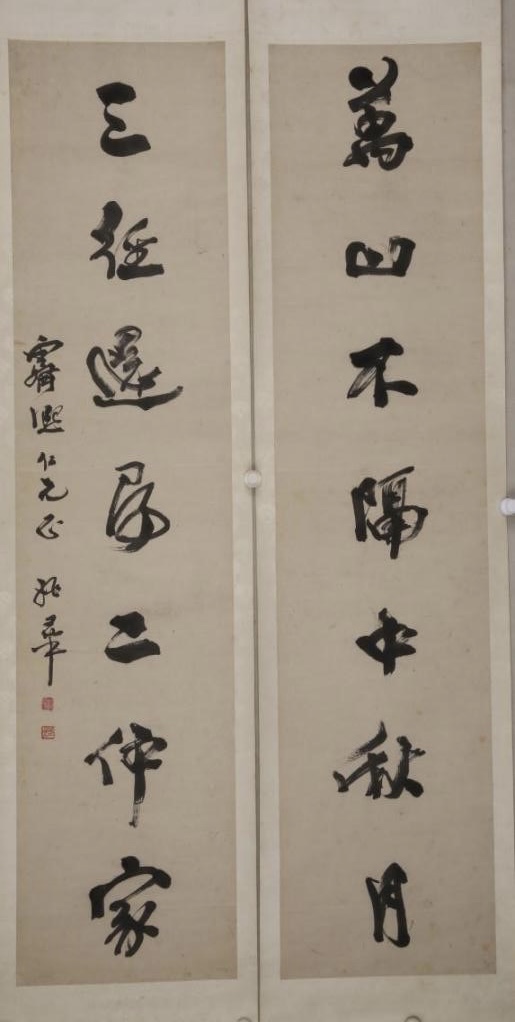 萬山不隔中秋月
三徑還尋二仲家
霽澄仁兄正 祖華